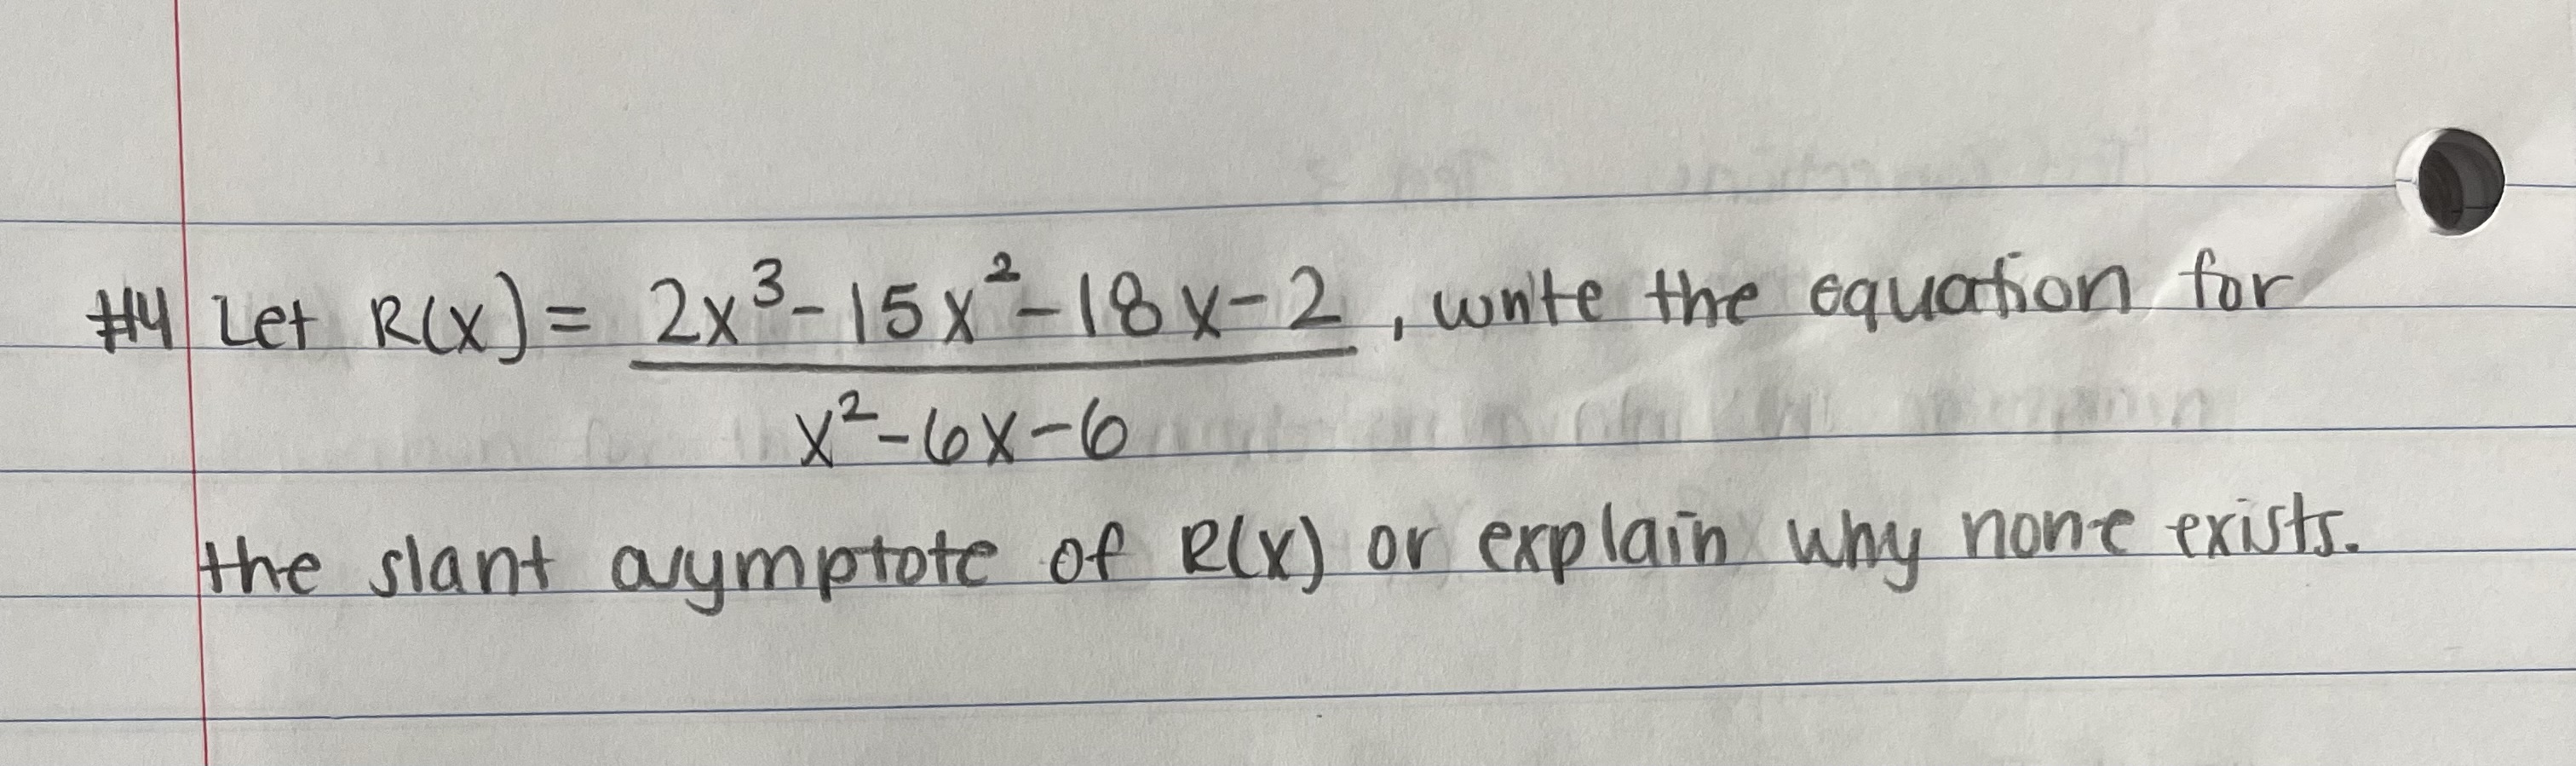 #4 Let R(x) = 2x³-15x²-18x-2, write the equation for
x²-6x-6
the slant asymptote of R(x) or explain why none exists.